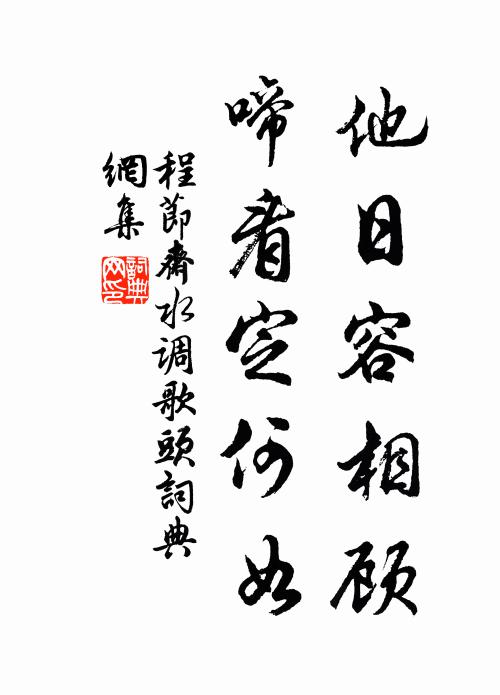 他日容相顾
啼看定何如
程節齋水调歌頭詞典
網集
詞典
网印